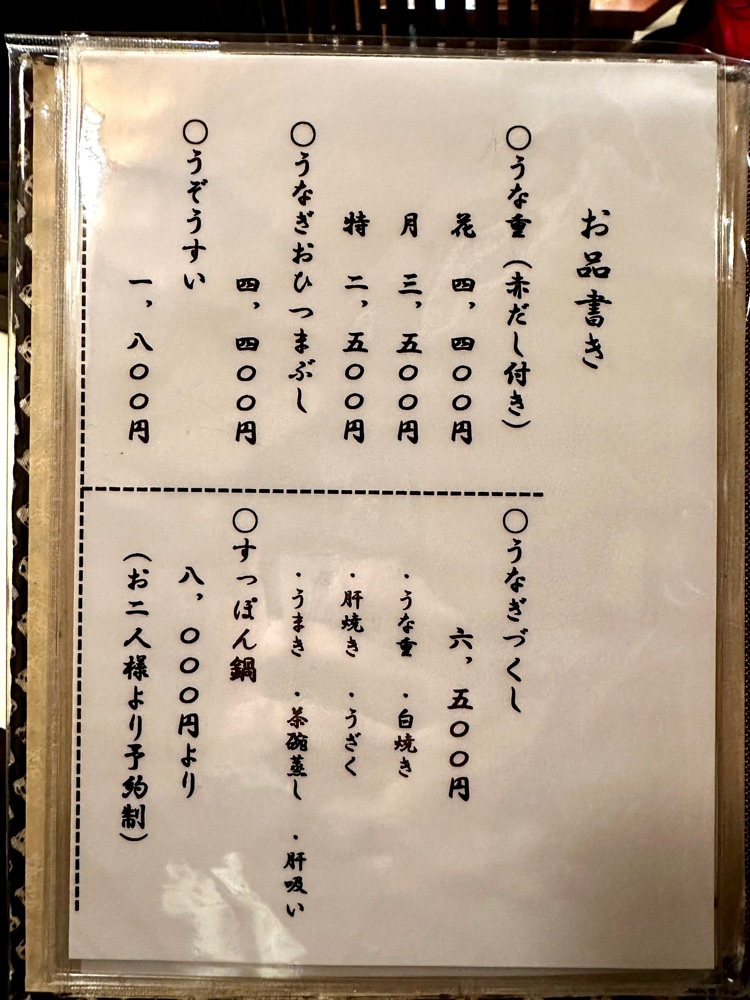 お品書き
〇うな重（赤だし付き）
花　四，四〇〇円
月　三，五〇〇円
特　二，五〇〇円
〇うなぎおひつまぶし
四，四〇〇円
〇うぞうすい
一，八〇〇円
〇うなぎづくし
六，五〇〇円
・うな重　・白焼き
・肝焼き　・うざく
・うまき　・茶碗蒸し　・肝吸い
〇すっぽん鍋
八，〇〇〇円より
（お二人様より予約制）